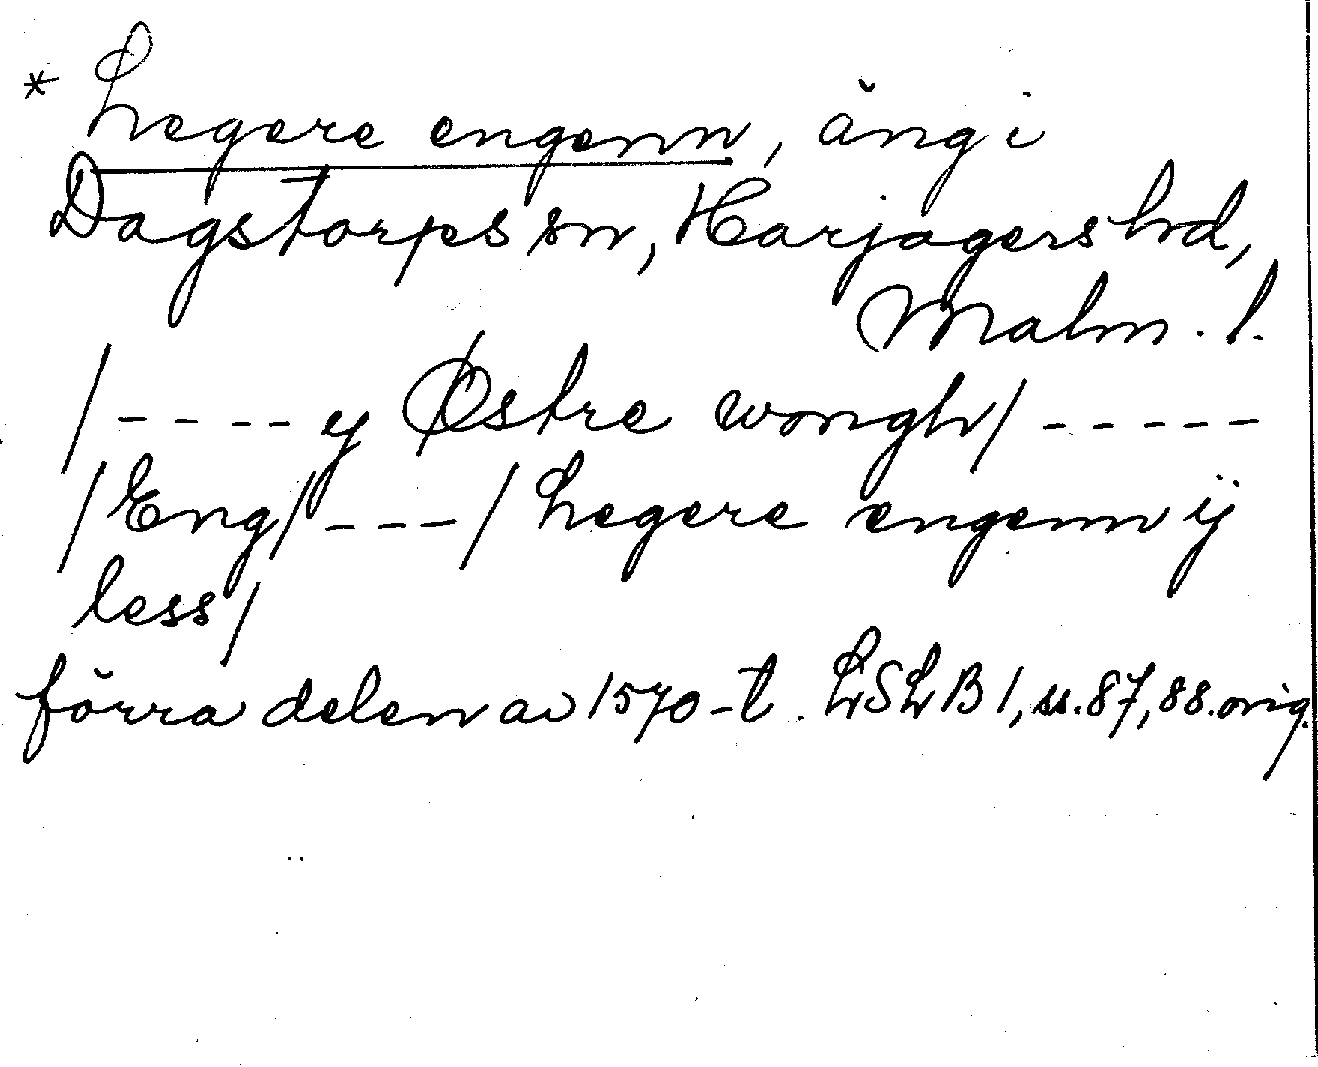 * hegere engenn, äng i
Dagstorps sn, Harjagers hd,
Malm. l.
/---- y Østre wongh/ -----
/Eng/ ---/ hegere engenn ij
less/
förra delen av 1570-t. LSLB 1, ss. 87, 88. orig.